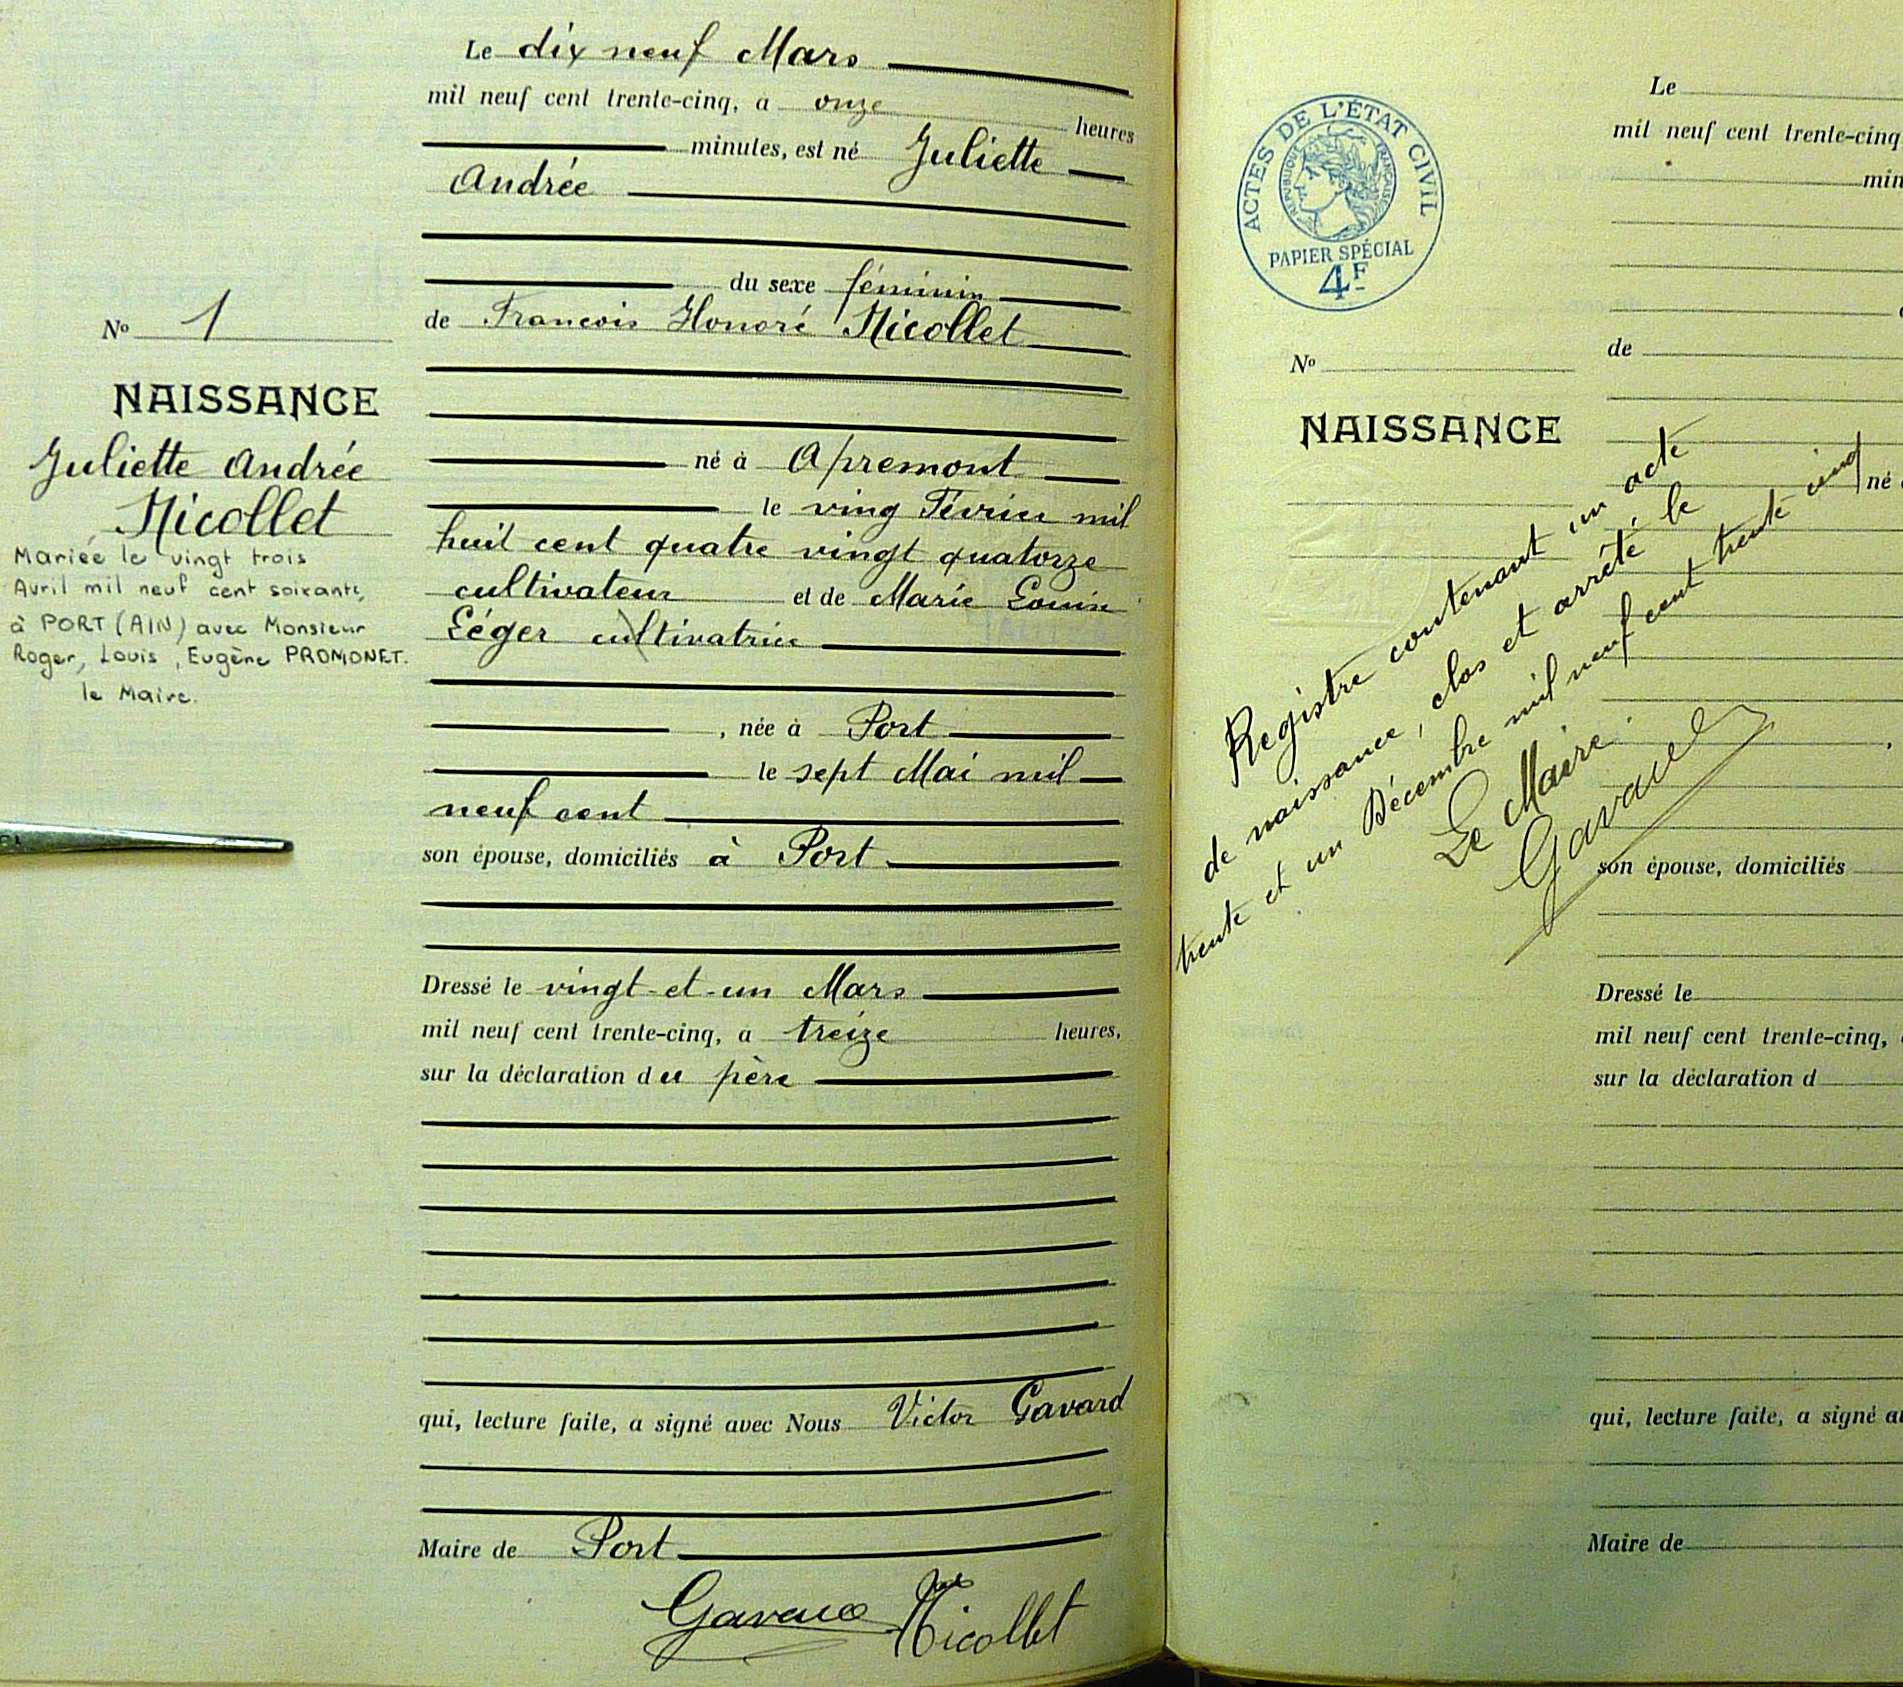 Le dix neuf Mars
mil neuf cent trente-cinq, a onze heures
minutes, est né Juliette
Andrée
du sexe féminin
de Francois Honoré Nicollet
né à Apremont
le ving Février mil
huit cent quatre vingt quatorze
cultivateur et de Marie Louise
Léger cultivatrice
, née à Port
le sept Mai mil
neuf cent
son épouse, domiciliés à Port
Dressé le vingt-et-un Mars
mil neuf cent trente-cinq, a treize heures,
sur la déclaration du père
qui, lecture faite, a signé avec Nous Victor Gavard
Maire de Port
Gavard Nicollet
No 1
NAISSANCE
Juliette Andrée
Nicollet
Mariée le vingt trois
Avril mil neuf cent soixante,
à PORT (AIN) avec Monsieur
Roger, Louis, Eugène PROMONET.
le Maire.
ACTES DE L'ÉTAT CIVIL
RÉPUBLIQUE FRANÇAISE
PAPIER SPÉCIAL
4F
No
NAISSANCE
Registre contenant un acte
de naissance, clos et arrêté le
trente et un Décembre mil neuf cent trente cinq
Le Maire.
Gavard
Le
mil neuf cent trente-cinq
min
de
né
son épouse, domiciliés
Dressé le
mil neuf cent trente-cinq,
sur la déclaration d
qui, lecture faite, a signé a
Maire de